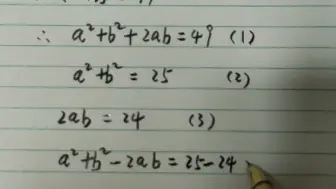 ∴ a²+b²+2ab=49 (1)
a²+b²=25 (2)
2ab=24 (3)
a²+b²-2ab=25-24